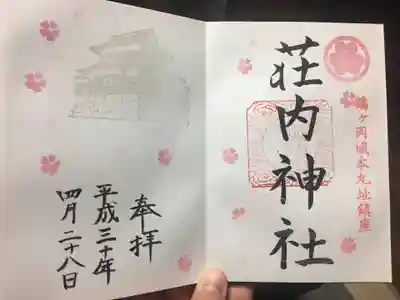 鶴ヶ岡城本丸址鎮座
荘内神社
奉拝
平成三十年
四月二十八日